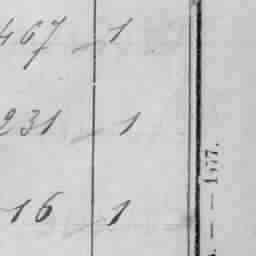 467 1
231 1
16 1
— — 1877.